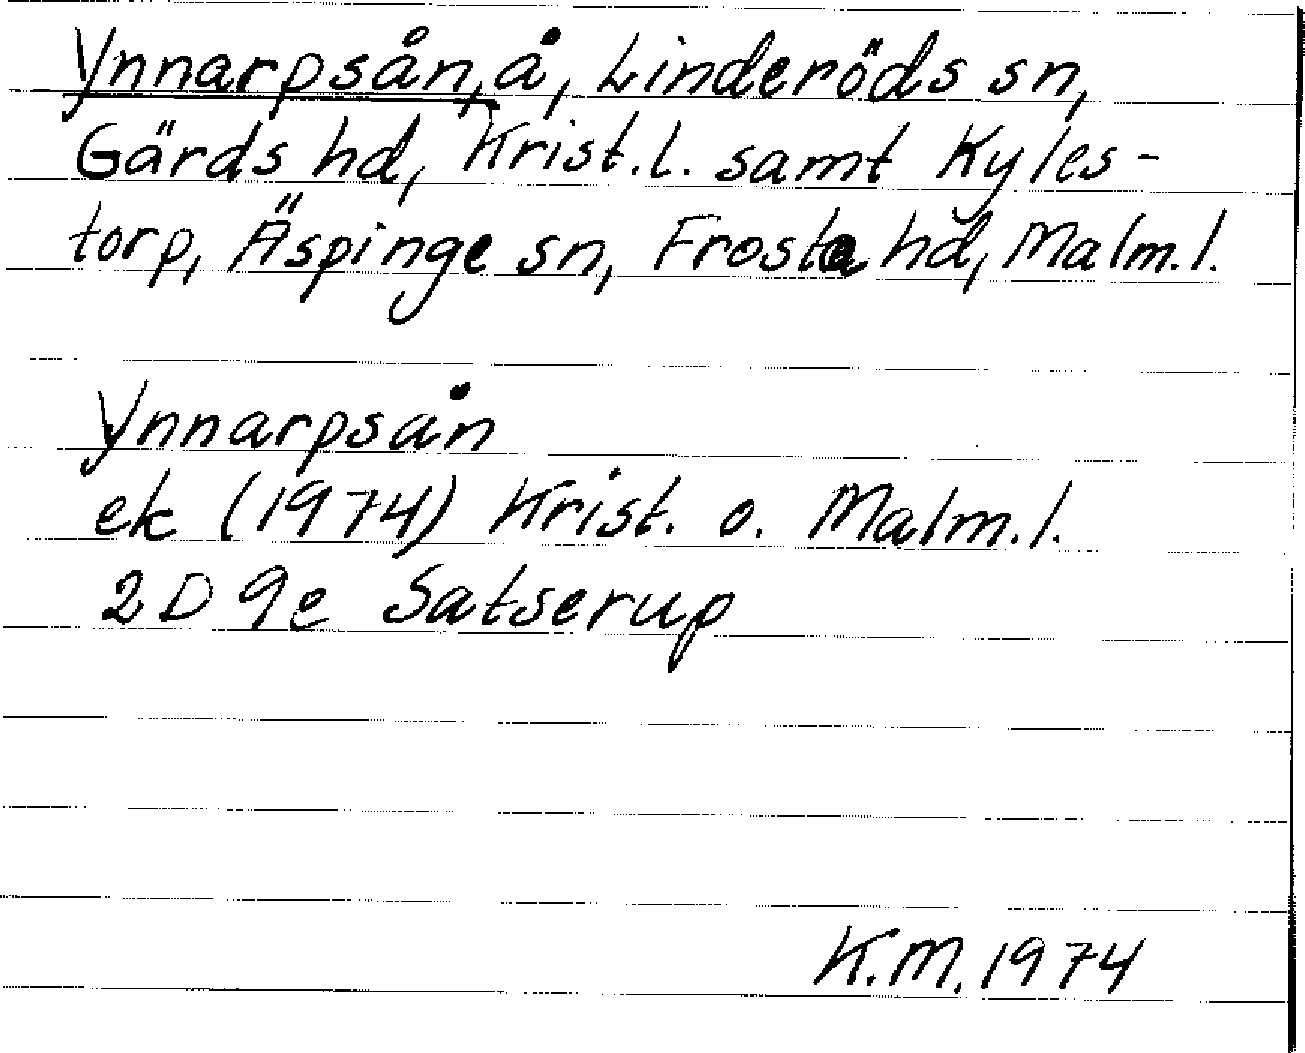 Ynnarpsån, å, Linderöds sn,
Gärds hd, Krist.l. samt Kyles-
torp, Äspinge sn, Frosta hd, Malm.l.
Ynnarpsån
ek (1974) Krist. o. Malm.l.
2D 9e Satserup
K.M. 1974